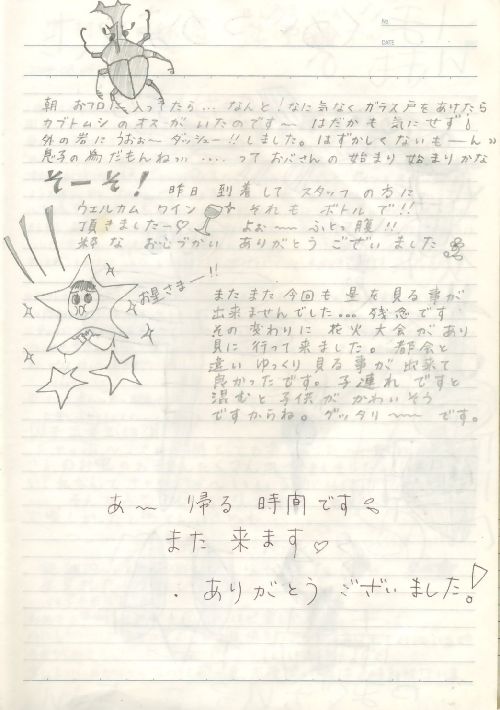 No
DATE
朝 おフロに入ってたら… なんと!なに気なく ガラス戸をあけたら
カブトムシの オス が いたのです〜 はだかも 気にせず!
外の岩に うおぉ〜 ダッシュー!!しました。はずかしくないもーん》
息子の為だもんねッ!! …… って おバさんの 始まり 始まりかな
そーそ! 昨日 到着して スタッフ の方に
ウェルカム ワイン それも ボトルで!!
頂きましたー♡ よぉ〜 ふとっ腹!!
粋な お心づかい ありがとう ございました
お星さまー!!
またまた 今回も 星を見る事が
出来ませんでした… 残念です
その変わりに 花火大会があり
見に行って来ました。都会と
違い ゆっくり 見る事が 出来て
良かったです。子連れ ですと
混むと 子供が かわいそう
ですからね。グッタリ〜〜 です。
あ〜 帰る 時間です
また 来ます♡
. ありがとう ございました!